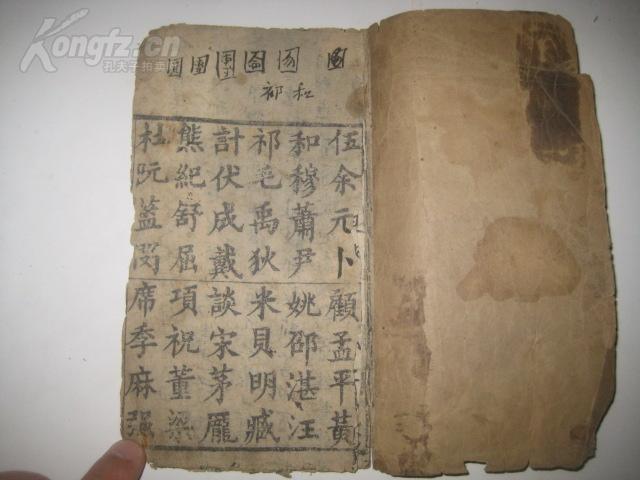 Kongfz.cn
孔夫子拍卖
和
祁
伍余元卜顧孟平黃
和穆蕭尹姚邵湛汪
祁毛禹狄米貝明臧
計伏成戴談宋茅龐
熊紀舒屈項祝董梁
杜阮藍閔席季麻強